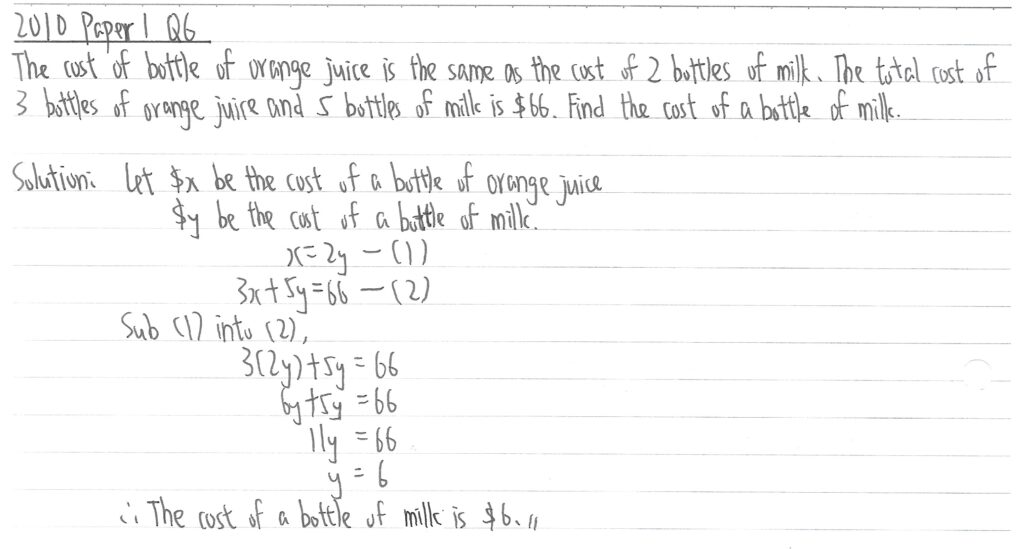 2010 Paper 1 Q6
The cost of bottle of orange juice is the same as the cost of 2 bottles of milk. The total cost of
3 bottles of orange juice and 5 bottles of milk is $66. Find the cost of a bottle of milk.
Solution: Let $x be the cost of a bottle of orange juice
$y be the cost of a bottle of milk.
x=2y – (1)
3x+5y=66 – (2)
Sub (1) into (2),
3(2y)+5y = 66
6y+5y = 66
11y = 66
y = 6
∴ The cost of a bottle of milk is $6.//